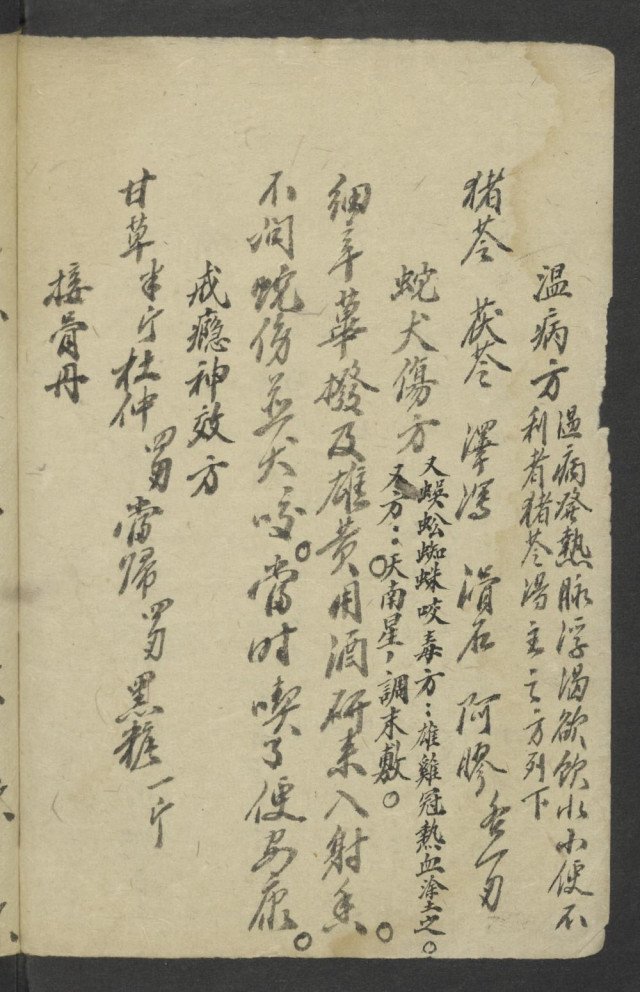 温病方
温病發熱脉浮渴欲飲水小便不
利者猪苓湯主之方列下
猪苓 茯苓 澤瀉 滑石 阿膠各一另
蛇犬傷方
又蜈蚣蜘蛛咬毒方：雄雞冠熱血涂之。
又方：天南星，調末敷。
細辛蓽撥及雄黄。用酒研末入射香。
不问蛇傷并犬咬。當时喫了便安康。
戒癮神效方
甘草半斤杜仲 當歸 黑糖一斤
接骨丹